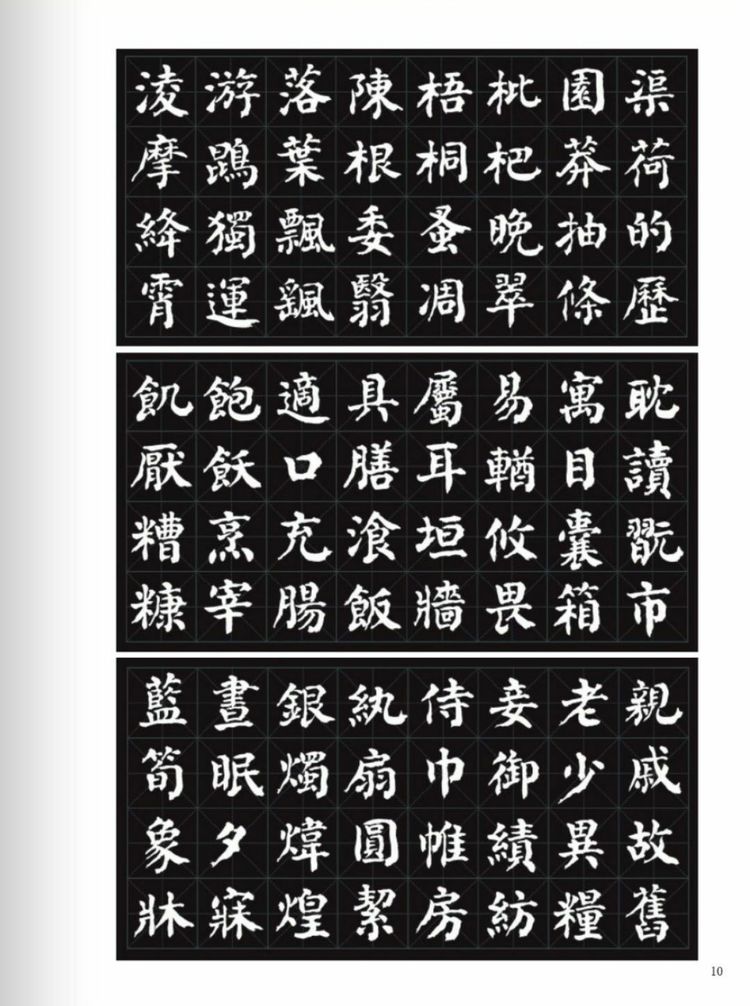 渠荷的歷
園莽抽條
枇杷晚翠
梧桐蚤凋
陳根委翳
落葉飄颻
游鵾獨運
淩摩絳霄
耽讀翫市
寓目囊箱
易輶攸畏
屬耳垣牆
具膳湌飯
適口充腸
飽飫烹宰
飢厭糟糠
親戚故舊
老少異糧
妾御績紡
侍巾帷房
紈扇圓絜
銀燭煒煌
晝眠夕寐
藍筍象牀
10